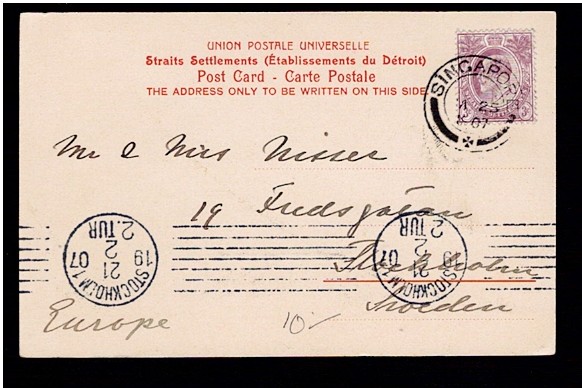 UNION POSTALE UNIVERSELLE
Straits Settlements (Établissements du Détroit)
Post Card - Carte Postale
THE ADDRESS ONLY TO BE WRITTEN ON THIS SIDE
SINGAPORE
23
07
Mr & Mrs Nisser
19 Fredsgatan
Stockholm
Sweden
Europe
10-
STOCKHOLM 1
21
2
19 07
2. TUR
STOCKHOLM 1
21
2
19 07
2. TUR